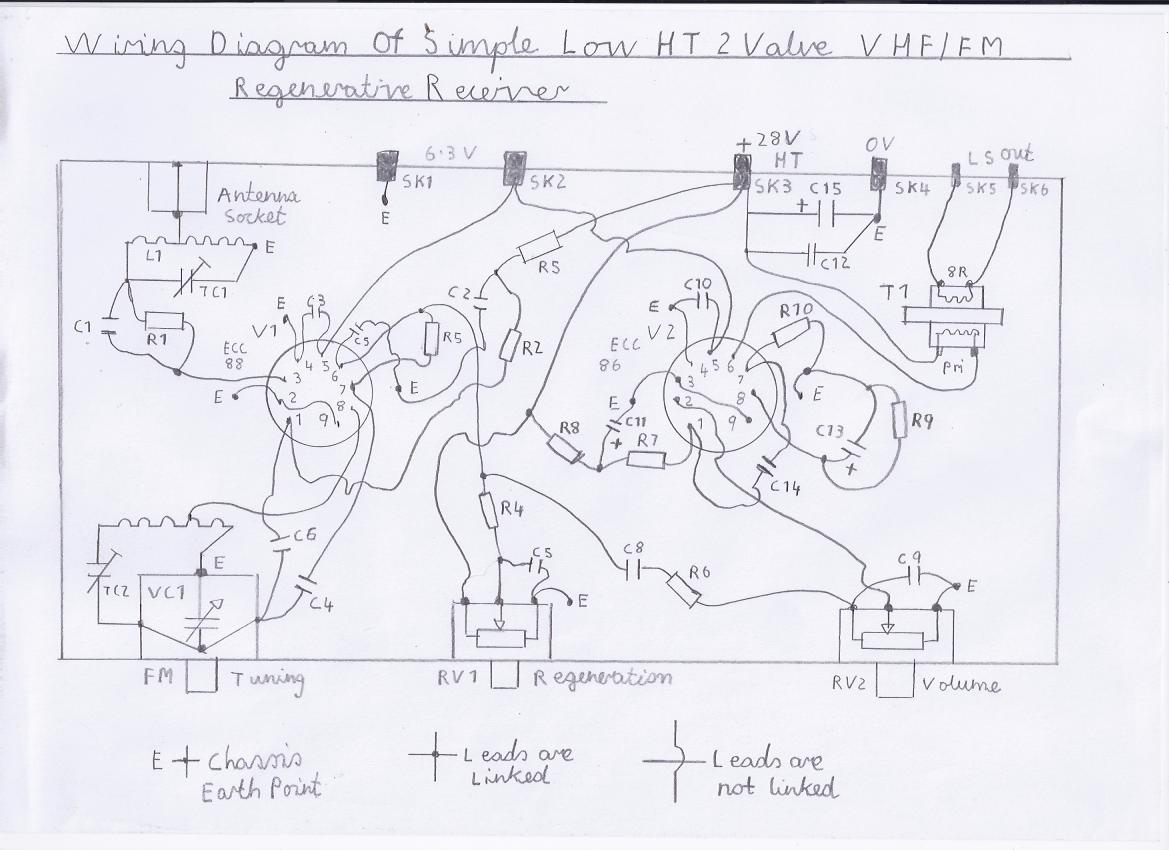 Wiring Diagram Of Simple Low HT 2 Valve VHF/FM
Regenerative Receiver
6·3V
+ 28V
HT
0V
LS out
SK1
SK2
SK3
C15
+
SK4
SK5
SK6
Antenna
Socket
E
E
L1
E
TC1
R5
C12
8R
T1
Pri
C1
R1
E
C3
V1
C5
ECC
88
R5
C2
R2
E
C10
V2
ECC
86
R10
4 5 6
3
7
2
8
1
9
E
E
4 5 6
3
7
2
8
1
9
E
E
C11
+
R8
R7
C13
+
R9
C14
C6
R4
E
TC2
VC1
C4
C5
E
C8
R6
C9
E
FM
Tuning
RV1
Regeneration
RV2
Volume
E
Chassis
Earth Point
Leads are
Linked
Leads are
not linked